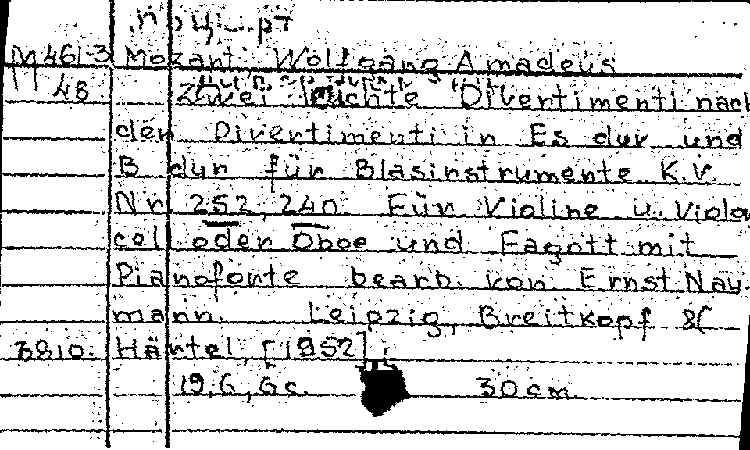 M461-3 Mozart Wolfgang Amadeus
M 48 Zwei leuchte Divertimenti nach
den Divertimenti in Es dur und
B dur für Blasinstrumente K.V.
Nr. 252, 240. Für Violine u. Viola
cell oder Oboe und Fagott mit
Pianoforte bearb. von Ernst Nau-
mann. Leipzig, Breitkopf &
3810. Härtel, [1952]
19, 6, 6 c. 30 cm.